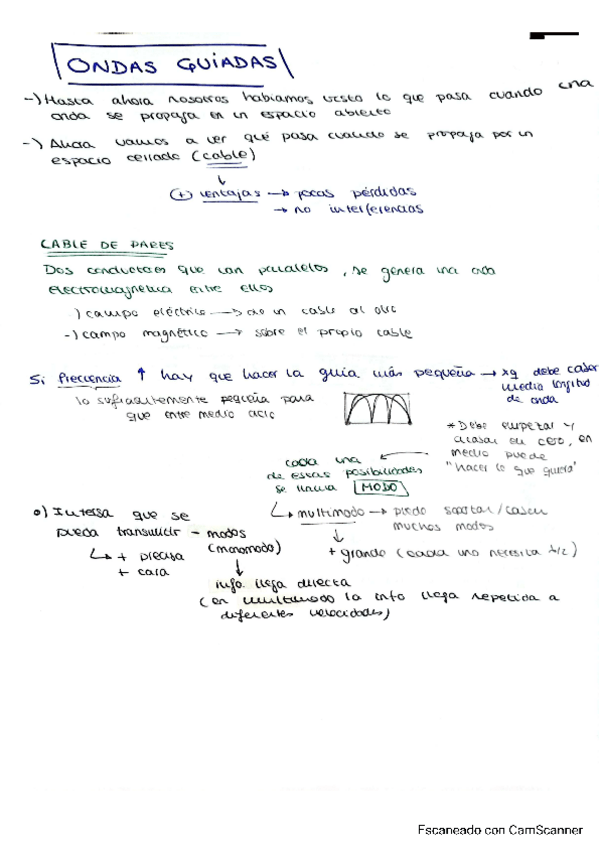 ONDAS GUIADAS
-) Hasta ahora nosotros habíamos visto lo que pasa cuando una
onda se propaga en un espacio abierto
-) Ahora vamos a ver qué pasa cuando se propaga por un
espacio cerrado (cable)
(+) ventajas → pocas pérdidas
→ no interferencias
CABLE DE PARES
Dos conductores que van paralelos, se genera una onda
electromagnética entre ellos
-) campo eléctrico → de un cable al otro
-) campo magnético → sobre el propio cable
Si frecuencia ↑ hay que hacer la guía más pequeña → xq debe caber
media longitud
de onda
lo suficientemente pequeña para
que entre medio ciclo
* Debe empezar y
acabar en cero, en
medio puede
"hacer lo que quiera"
cada una
de estas posibilidades
se llama MODO
↳ multimodo → puedo soportar/caben
muchos modos
+ grande (cada uno necesita λ/2)
o) Interesa que se
pueda transmitir - modos
(monomodo)
↳ + precisa
+ cara
info. llega directa
(en multimodo la info llega repetida a
diferentes velocidades)
Escaneado con CamScanner